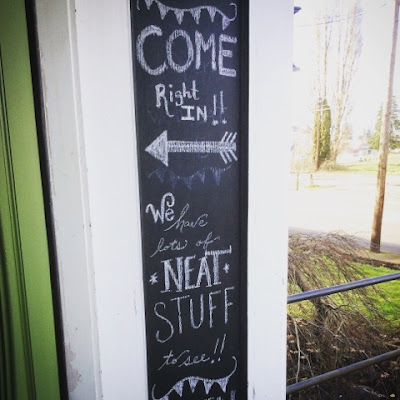 COME
Right
IN!!
We
have
lots of
*NEAT*
STUFF
to see!!